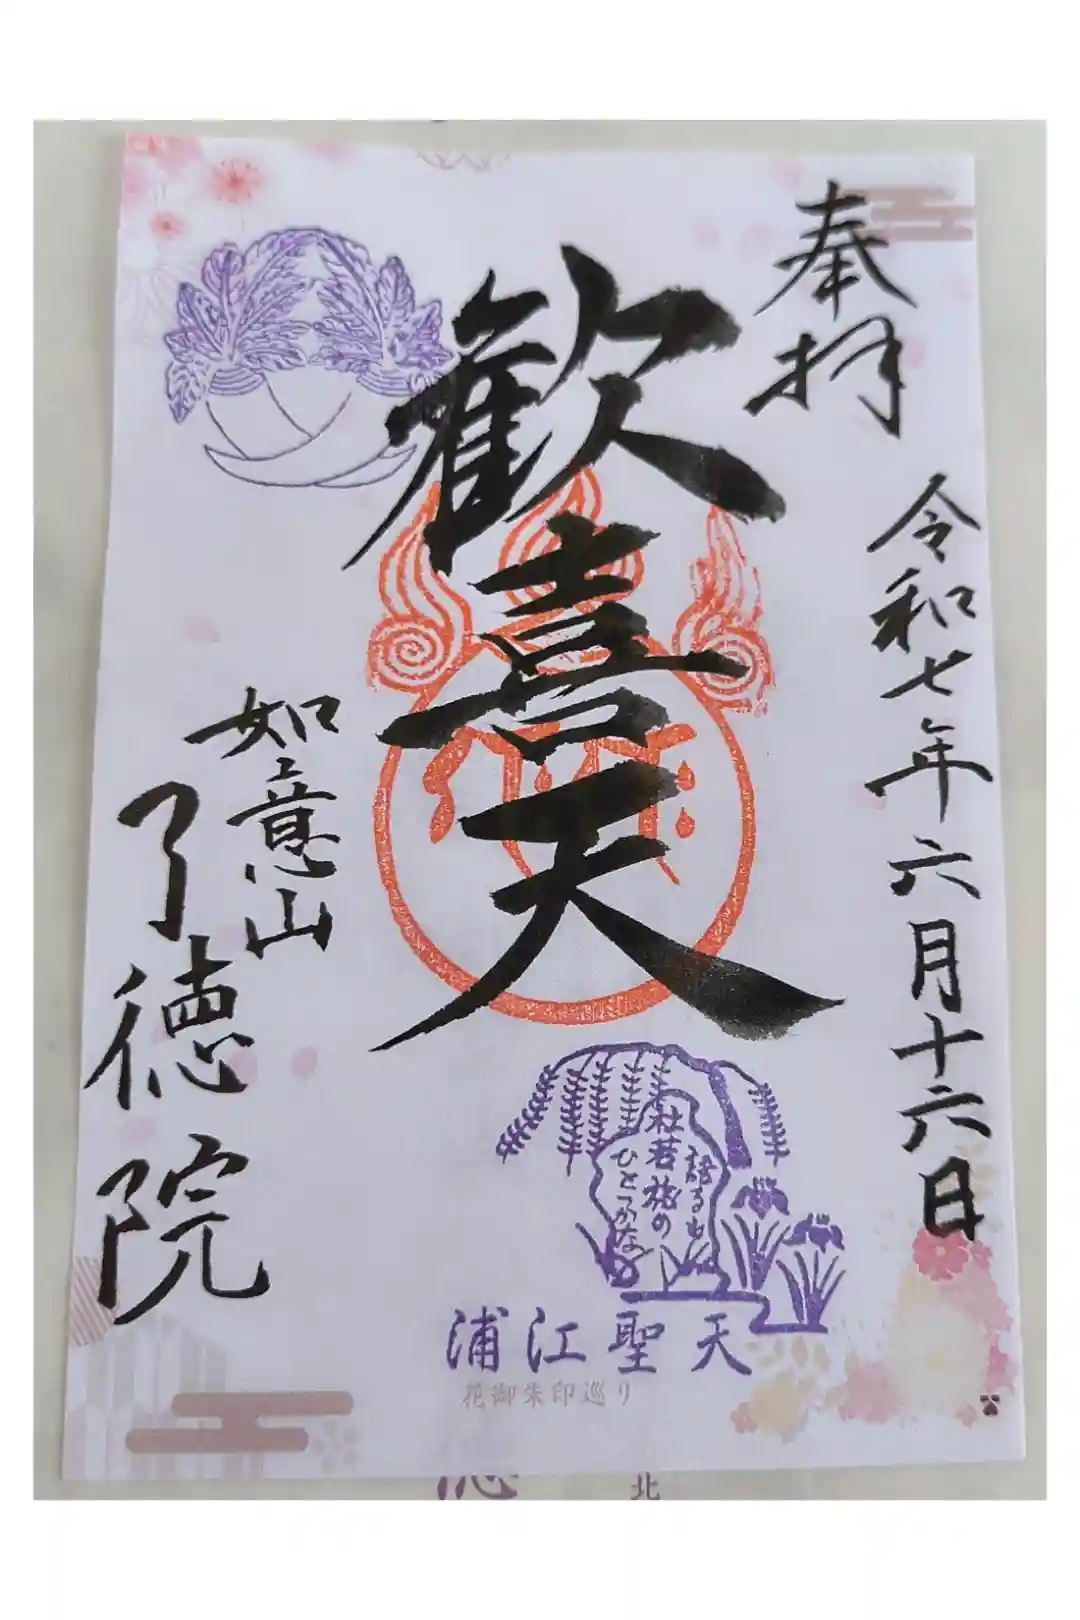 奉拝
令和七年六月十六日
歓喜天
如意山
了徳院
杜若
語るも
旅の
ひとつかな
浦江聖天
花御朱印巡り
北